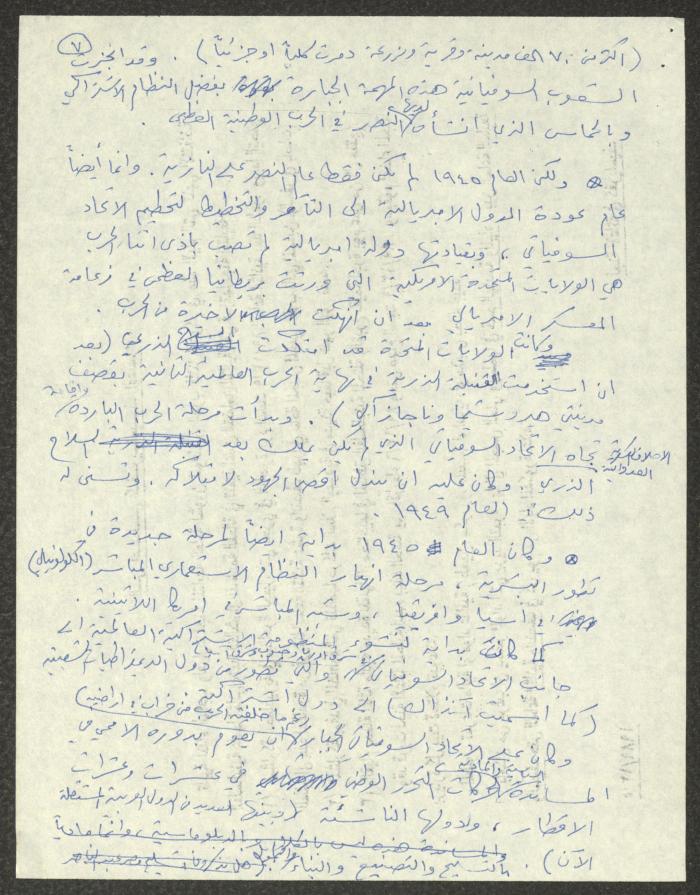 ٧
(اكثر من ٧٠ الف مدينة وقرية ومزرعة دمرت كلياً او جزئياً) . وقد انجزت
الشعوب السوفياتية هذه المهمة الجبارة بفضل النظام الاشتراكي
وبالحماس الذي انشأه لديها النصر في الحرب الوطنية العظمى .
⊗ ولكن العام ١٩٤٥ لم يكن فقط عام النصر على النازية . وانما أيضاً
عام عودة الدول الامبريالية الى التآمر والتخطيط لتحطيم الاتحاد
السوفياتي ، وبقيادتها دولة امبريالية لم تصب بأذى اثناء الحرب
هي الولايات المتحدة الاميركية التي ورثت بريطانيا العظمى في زعامة
المعسكر الامبريالي بعد ان أنهكت الاخيرة من الحرب .
وكانت الولايات المتحدة قد امتلكت السلاح الذري (بعد
ان استخدمت القنبلة الذرية في نهاية الحرب العالمية الثانية بقصف
مدينتي هيروشيما وناجازاكي) . وبدأت مرحلة الحرب الباردة واقامة
الاحلاف العسكرية العدوانية تجاه الاتحاد السوفياتي الذي لم يكن يملك بعد السلاح
الذري . وكان عليه ان يبذل اقصى الجهود لامتلاكه . وتسنى له
ذلك العام ١٩٤٩ .
⊗ وكان العام ١٩٤٥ بداية ايضاً لمرحلة جديدة في
تطور البشرية ، مرحلة انهيار النظام الاستعماري المباشر (الكولونيالي)
في آسيا وافريقيا ، وشبه المباشر في امريكا اللاتينية .
كما كانت بداية لنشوء المنظومة الاشتراكية العالمية الى
جانب الاتحاد السوفياتي والتي تطور من دول الديمقراطيات الشعبية
(كما أسميت آنذاك) الى دول اشتراكية
وكان على الاتحاد السوفياتي الجبار (رغم ما خلفته الحرب من خراب في اراضيه) ان يقوم بدوره الاممي في
المساندة لحركات التحرر الوطني في عشرات وعشرات
الاقطار ، ولدولها الناشئة (وبينها العديد من الدول العربية المستقلة
الآن) . بالتسليح والتصنيع والبناء